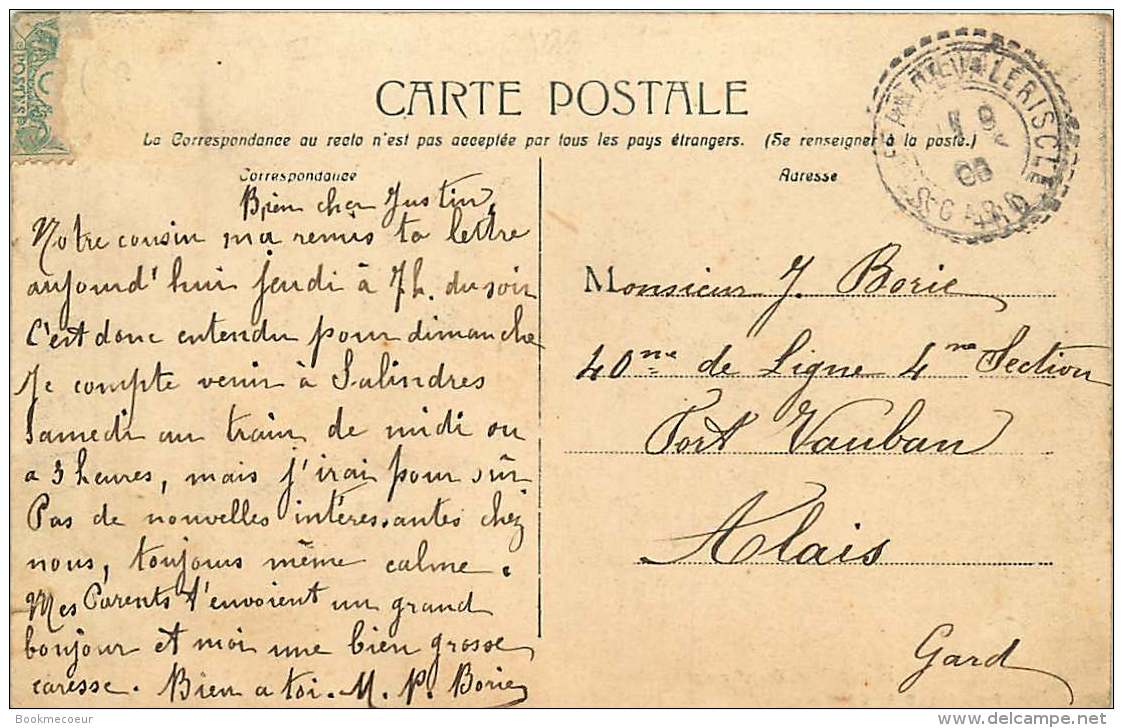 POSTES
CARTE POSTALE
La Correspondance au recto n'est pas acceptée par tous les pays étrangers. (Se renseigner à la poste.)
Correspondance
Bien cher Justin,
Notre cousin m'a remis ta lettre
aujourd'hui jeudi à 7h. du soir
C'est donc entendu pour dimanche
Je compte venir à Salindres
Samedi au train de midi ou
a 3 heures, mais j'irai pour sûr
Pas de nouvelles intéressantes chez
nous, toujours même calme.
Mes Parents t'envoient un grand
bonjour et moi une bien grosse
caresse. Bien a toi. M. P. Borie
Adresse
VALERISCLE
9
GARD
Monsieur J. Borie
40me de Ligne 4me Section
Fort Vauban
Alais
Gard
Bookmecoeur
www.delcampe.net